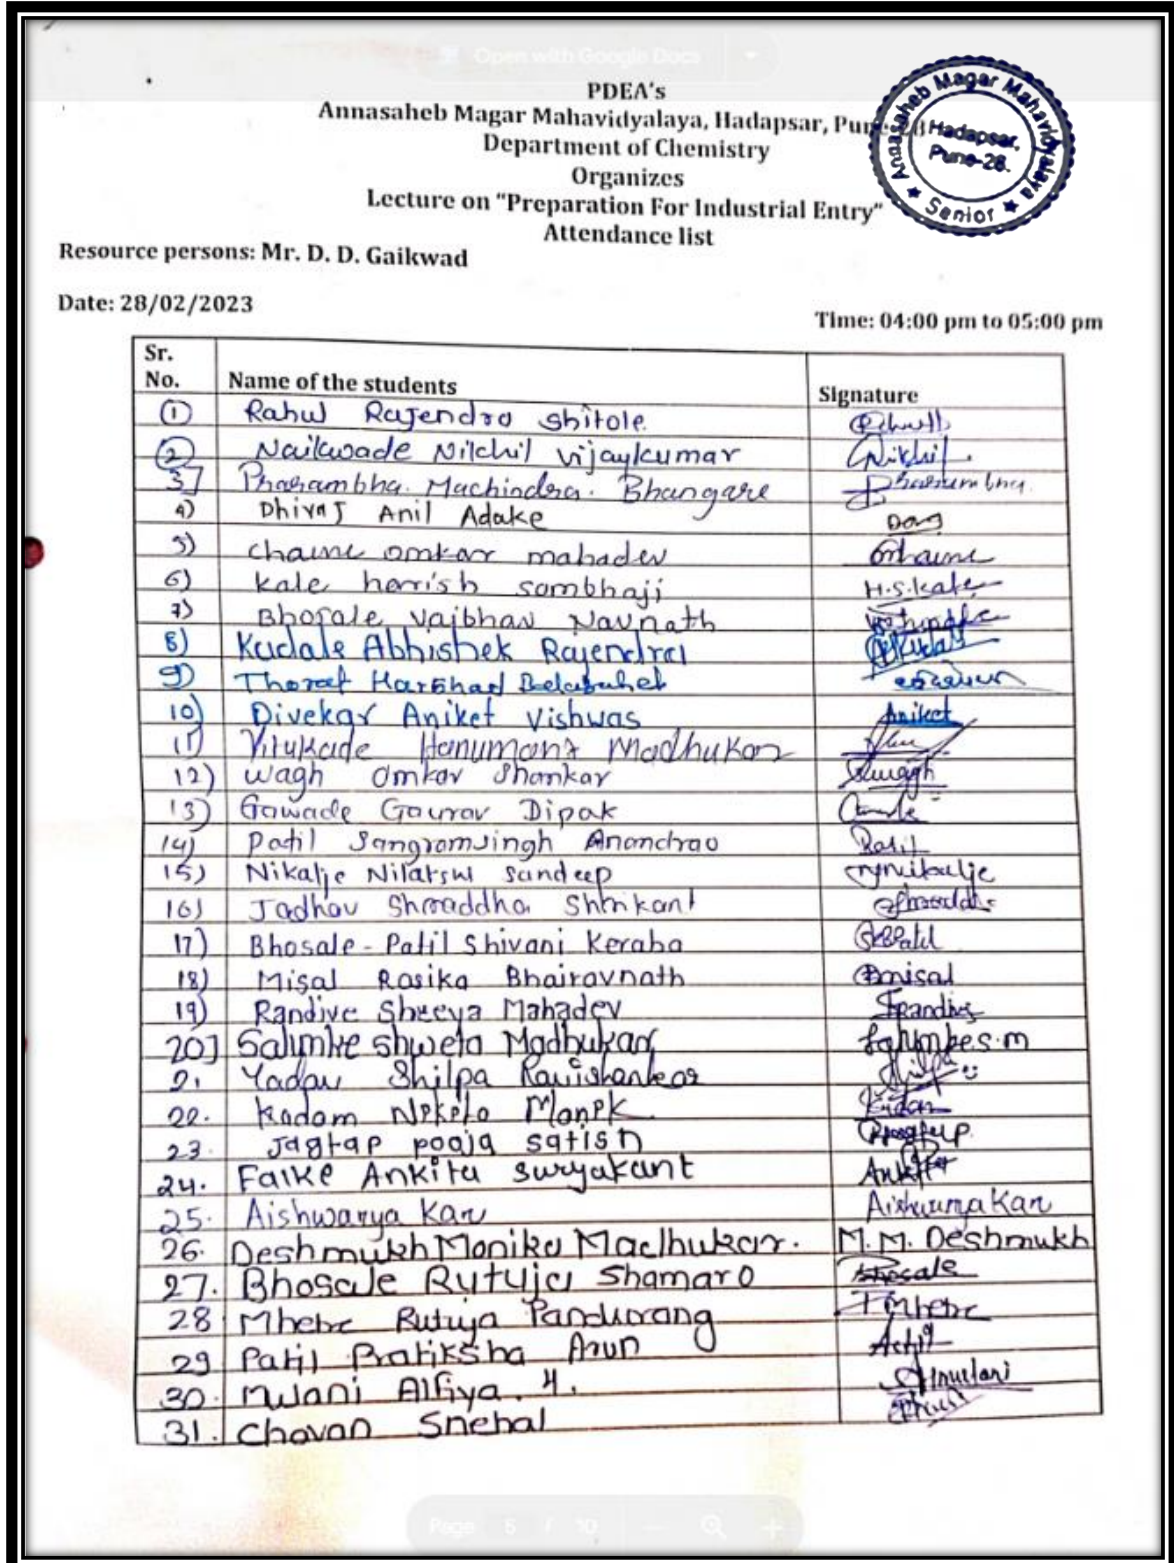 Open with Google Docs
PDEA's
Annasaheb Magar Mahavidyalaya, Hadapsar, Pune-28
Department of Chemistry
Organizes
Lecture on "Preparation For Industrial Entry"
Attendance list
Annasaheb Magar Mahavidyalaya
Hadapsar,
Pune-28.
★ Senior ★
Resource persons: Mr. D. D. Gaikwad
Date: 28/02/2023
Time: 04:00 pm to 05:00 pm
Sr. No. Name of the students Signature
1 Rahul Rajendra Shitole
2 Naikwade Nikhil vijaykumar Nikhil
3] Prarambha. Machindra. Bhangare Prarambha.
4) Dhiraj Anil Adake
5) Chaure omkar mahadev
6) kale harrish sambhaji H.S.kale
7) Bhosale Vaibhav Navnath
8) Kudale Abhishek Rajendra
9) Thorat Harshad Balasaheb
10) Divekar Aniket Vishwas Aniket
11) Hanumant Madhukar
12) wagh Omkar Shankar
13) Gawade Gaurav Dipak
14) Patil Sangramsingh Anandrao Patil
15) Nikalje Sandeep
16) Jadhav Shraddha Shrikant
17) Bhosale-Patil Shivani Keraba
18) Misal Rasika Bhairavnath
19) Randive Shreya Mahadev
20] Salunke Shweta Madhukar Salunkhe S.m
21 Yadav Shilpa Ravishankar
22. Kadam Niketa Manik
23. Jagtap pooja satish
24. Falke Ankita Suryakant
25. Aishwarya Kar Aishwarya Kar
26. Deshmukh Monika Madhukar. M.M. Deshmukh
27. Bhosale Rutuja Shamaro Bhosale
28 Mhetre Rutuja Pandurang
29 Patil Pratiksha Arun
30. Mulani Alfiya. H.
31. Chavan Snehal
Page 5 / 10